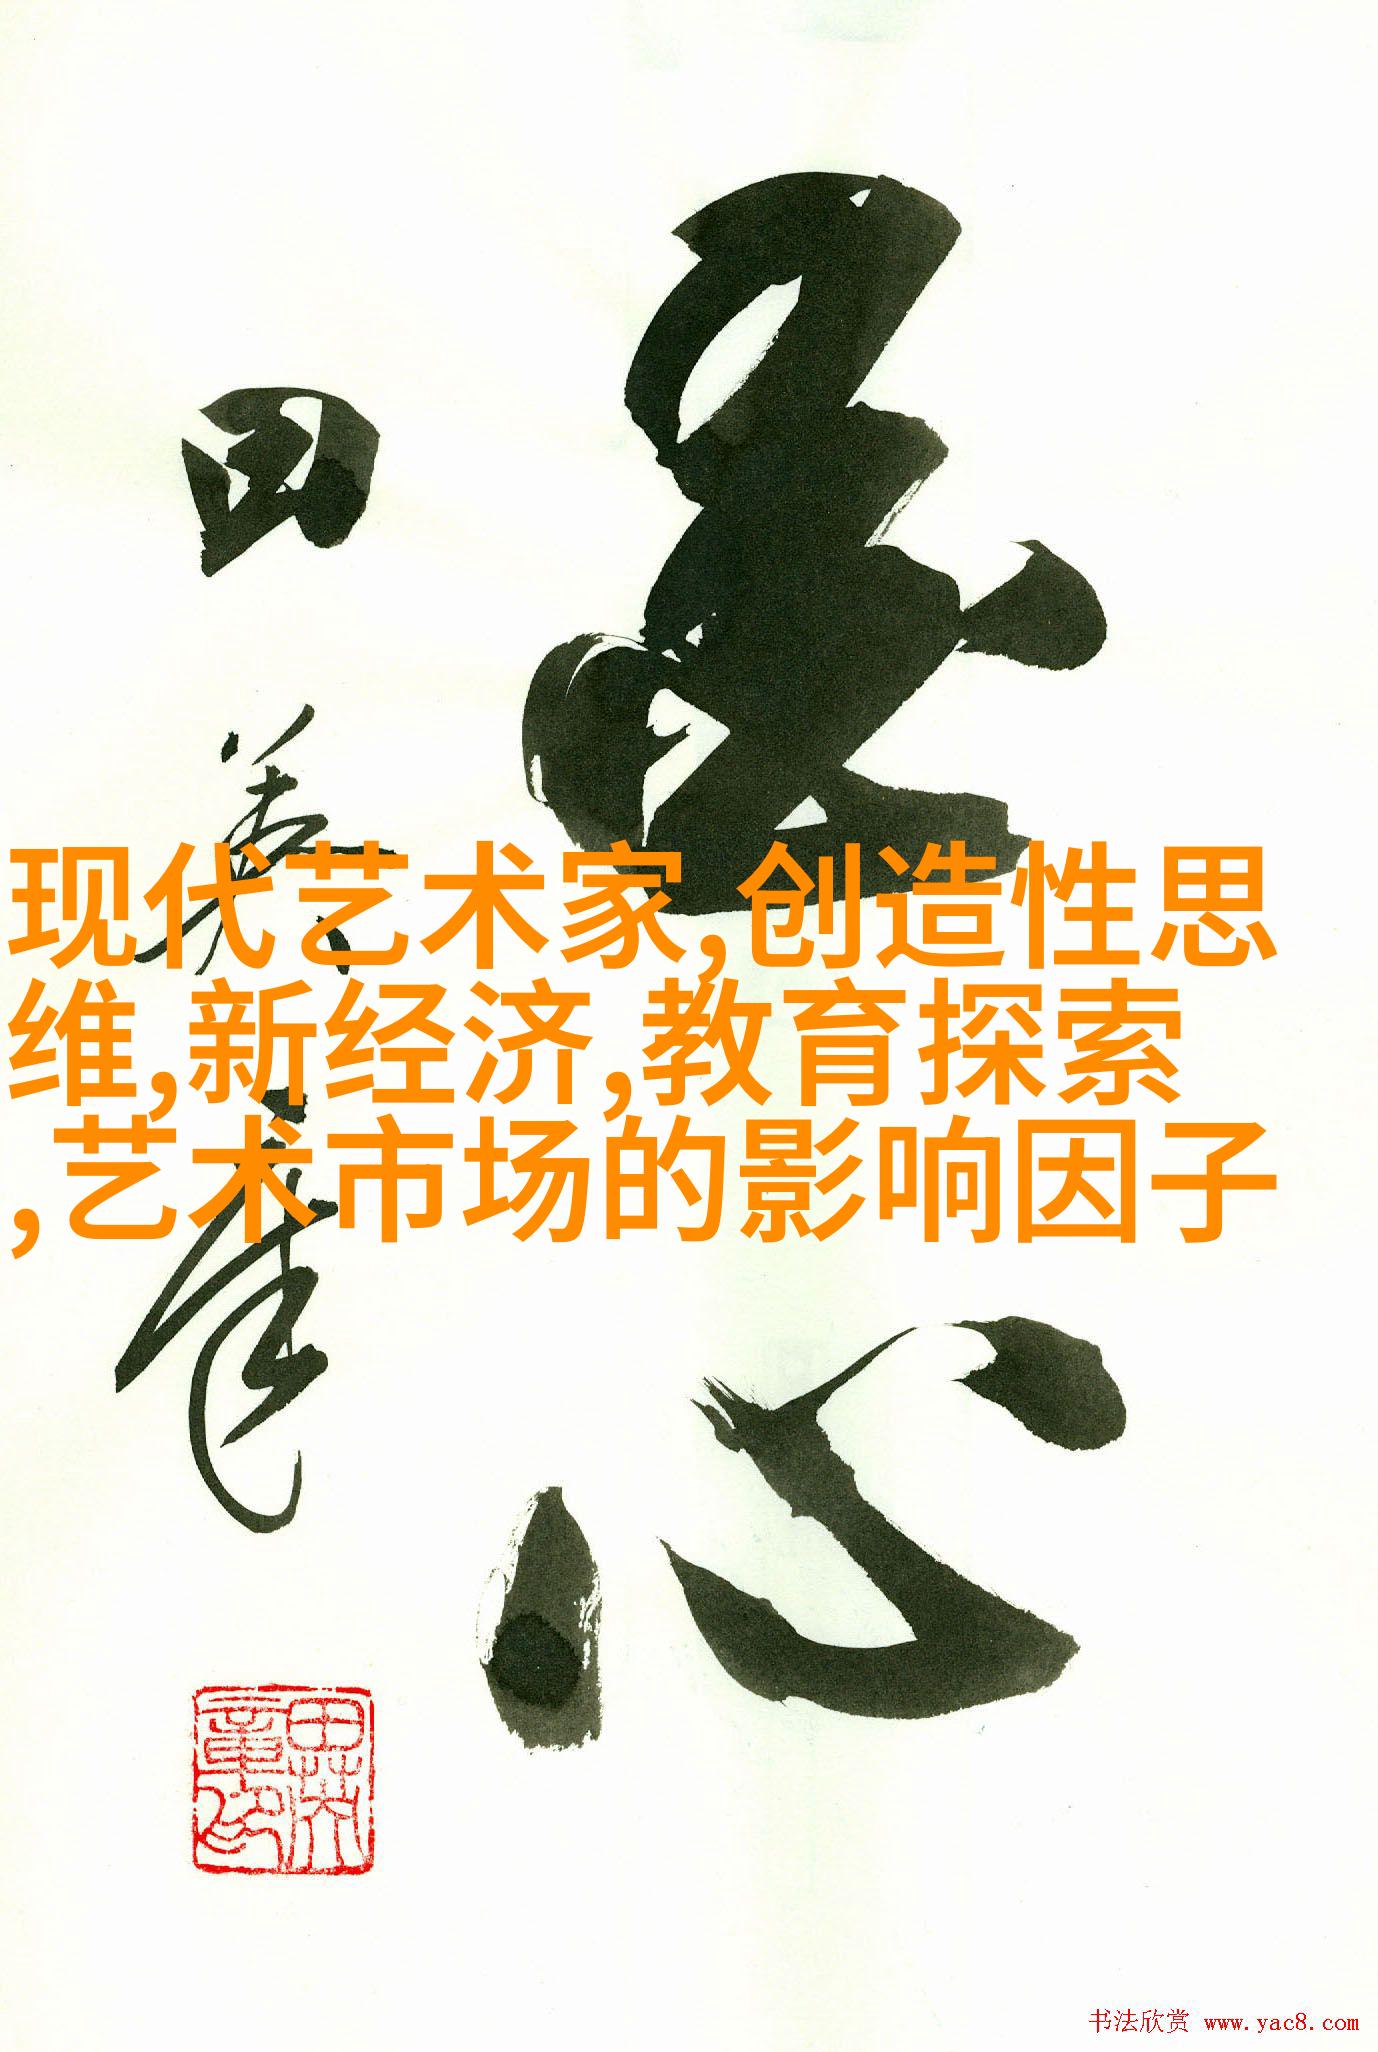 现代艺术家,创造性思
维,新经济,教育探索
,艺术市场的影响因子
田英章
心
书法欣赏 www.yac8.com